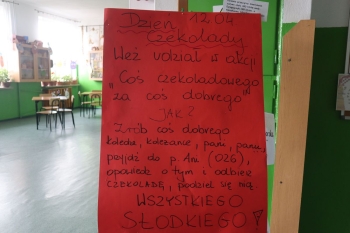 Dzień 12.04
Czekolady
Weź udział w akcji
"Coś czekoladowego
za coś dobrego"
JAK?
Zrób coś dobrego
koledze, koleżance, pani, panu,
przyjdź do p. Ani (026),
opowiedz o tym i odbierz
CZEKOLADĘ, podziel się nią.
WSZYSTKIEGO
SŁODKIEGO!